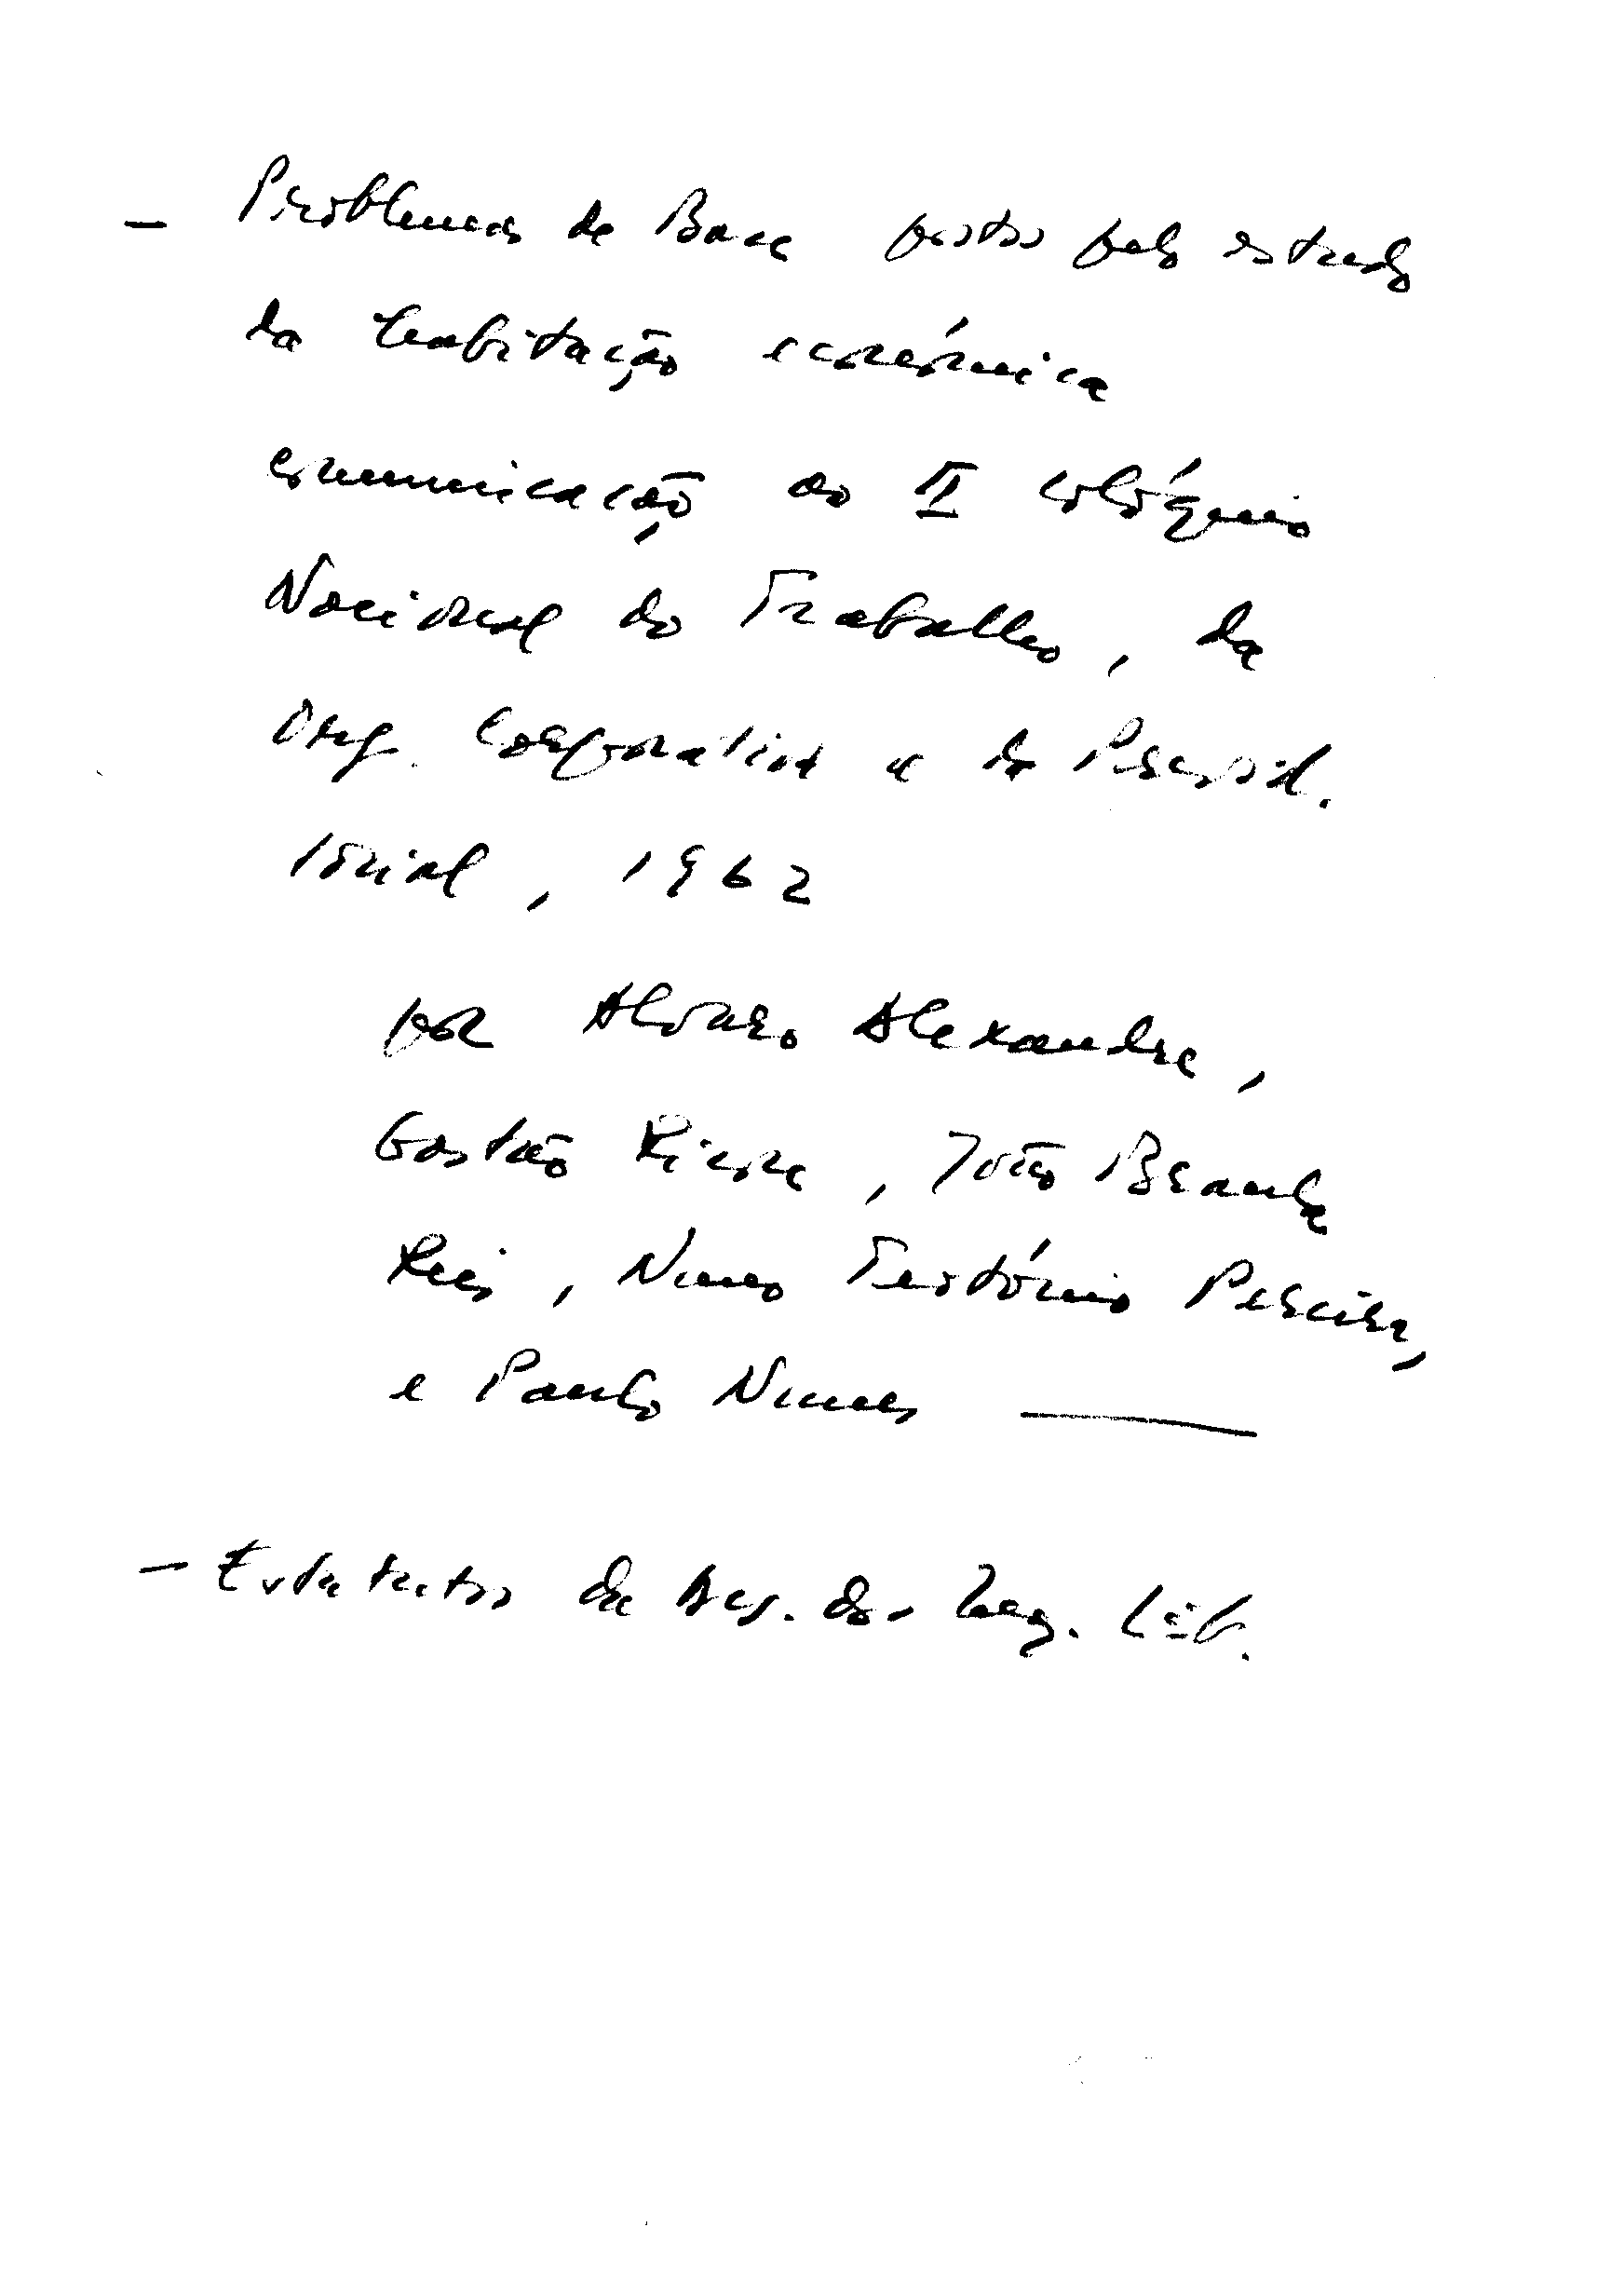 - Problemas de Base postos pelo estudo
da habitação económica
comunicação ao II Colóquio
Nacional do Trabalho, da
Org. Corporativa e da Previd.
Social, 1962
por Alvaro Alexandre,
Gastão Ricou, João Braula
Reis, Nuno Teotónio Pereira,
e Paulo Nunes
- Estatutos da